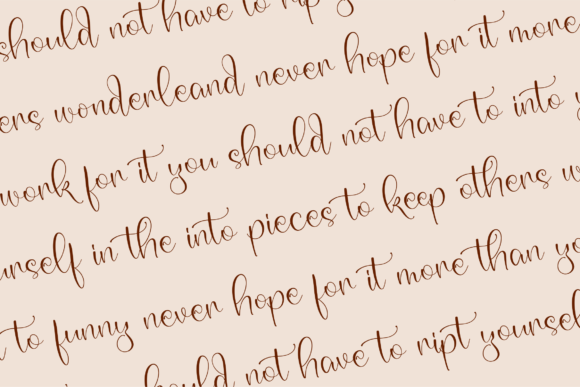 should not have to rip
ers wonderleand never hope for it more
work for it you should not have to into
urself in the into pieces to keep others w
to funny never hope for it more than yo
should not have to ript yourself